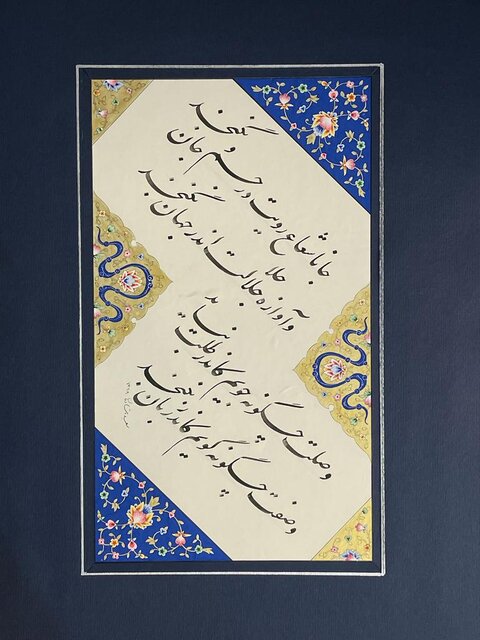 جانا شعاع رویت در جسم و جان نگنجد
وآوازه جلالت اندر جهان نگنجد
وصلت چگونه جویم کاندر طلب نیاید
وصفت چگونه گویم کاندر زبان نگنجد